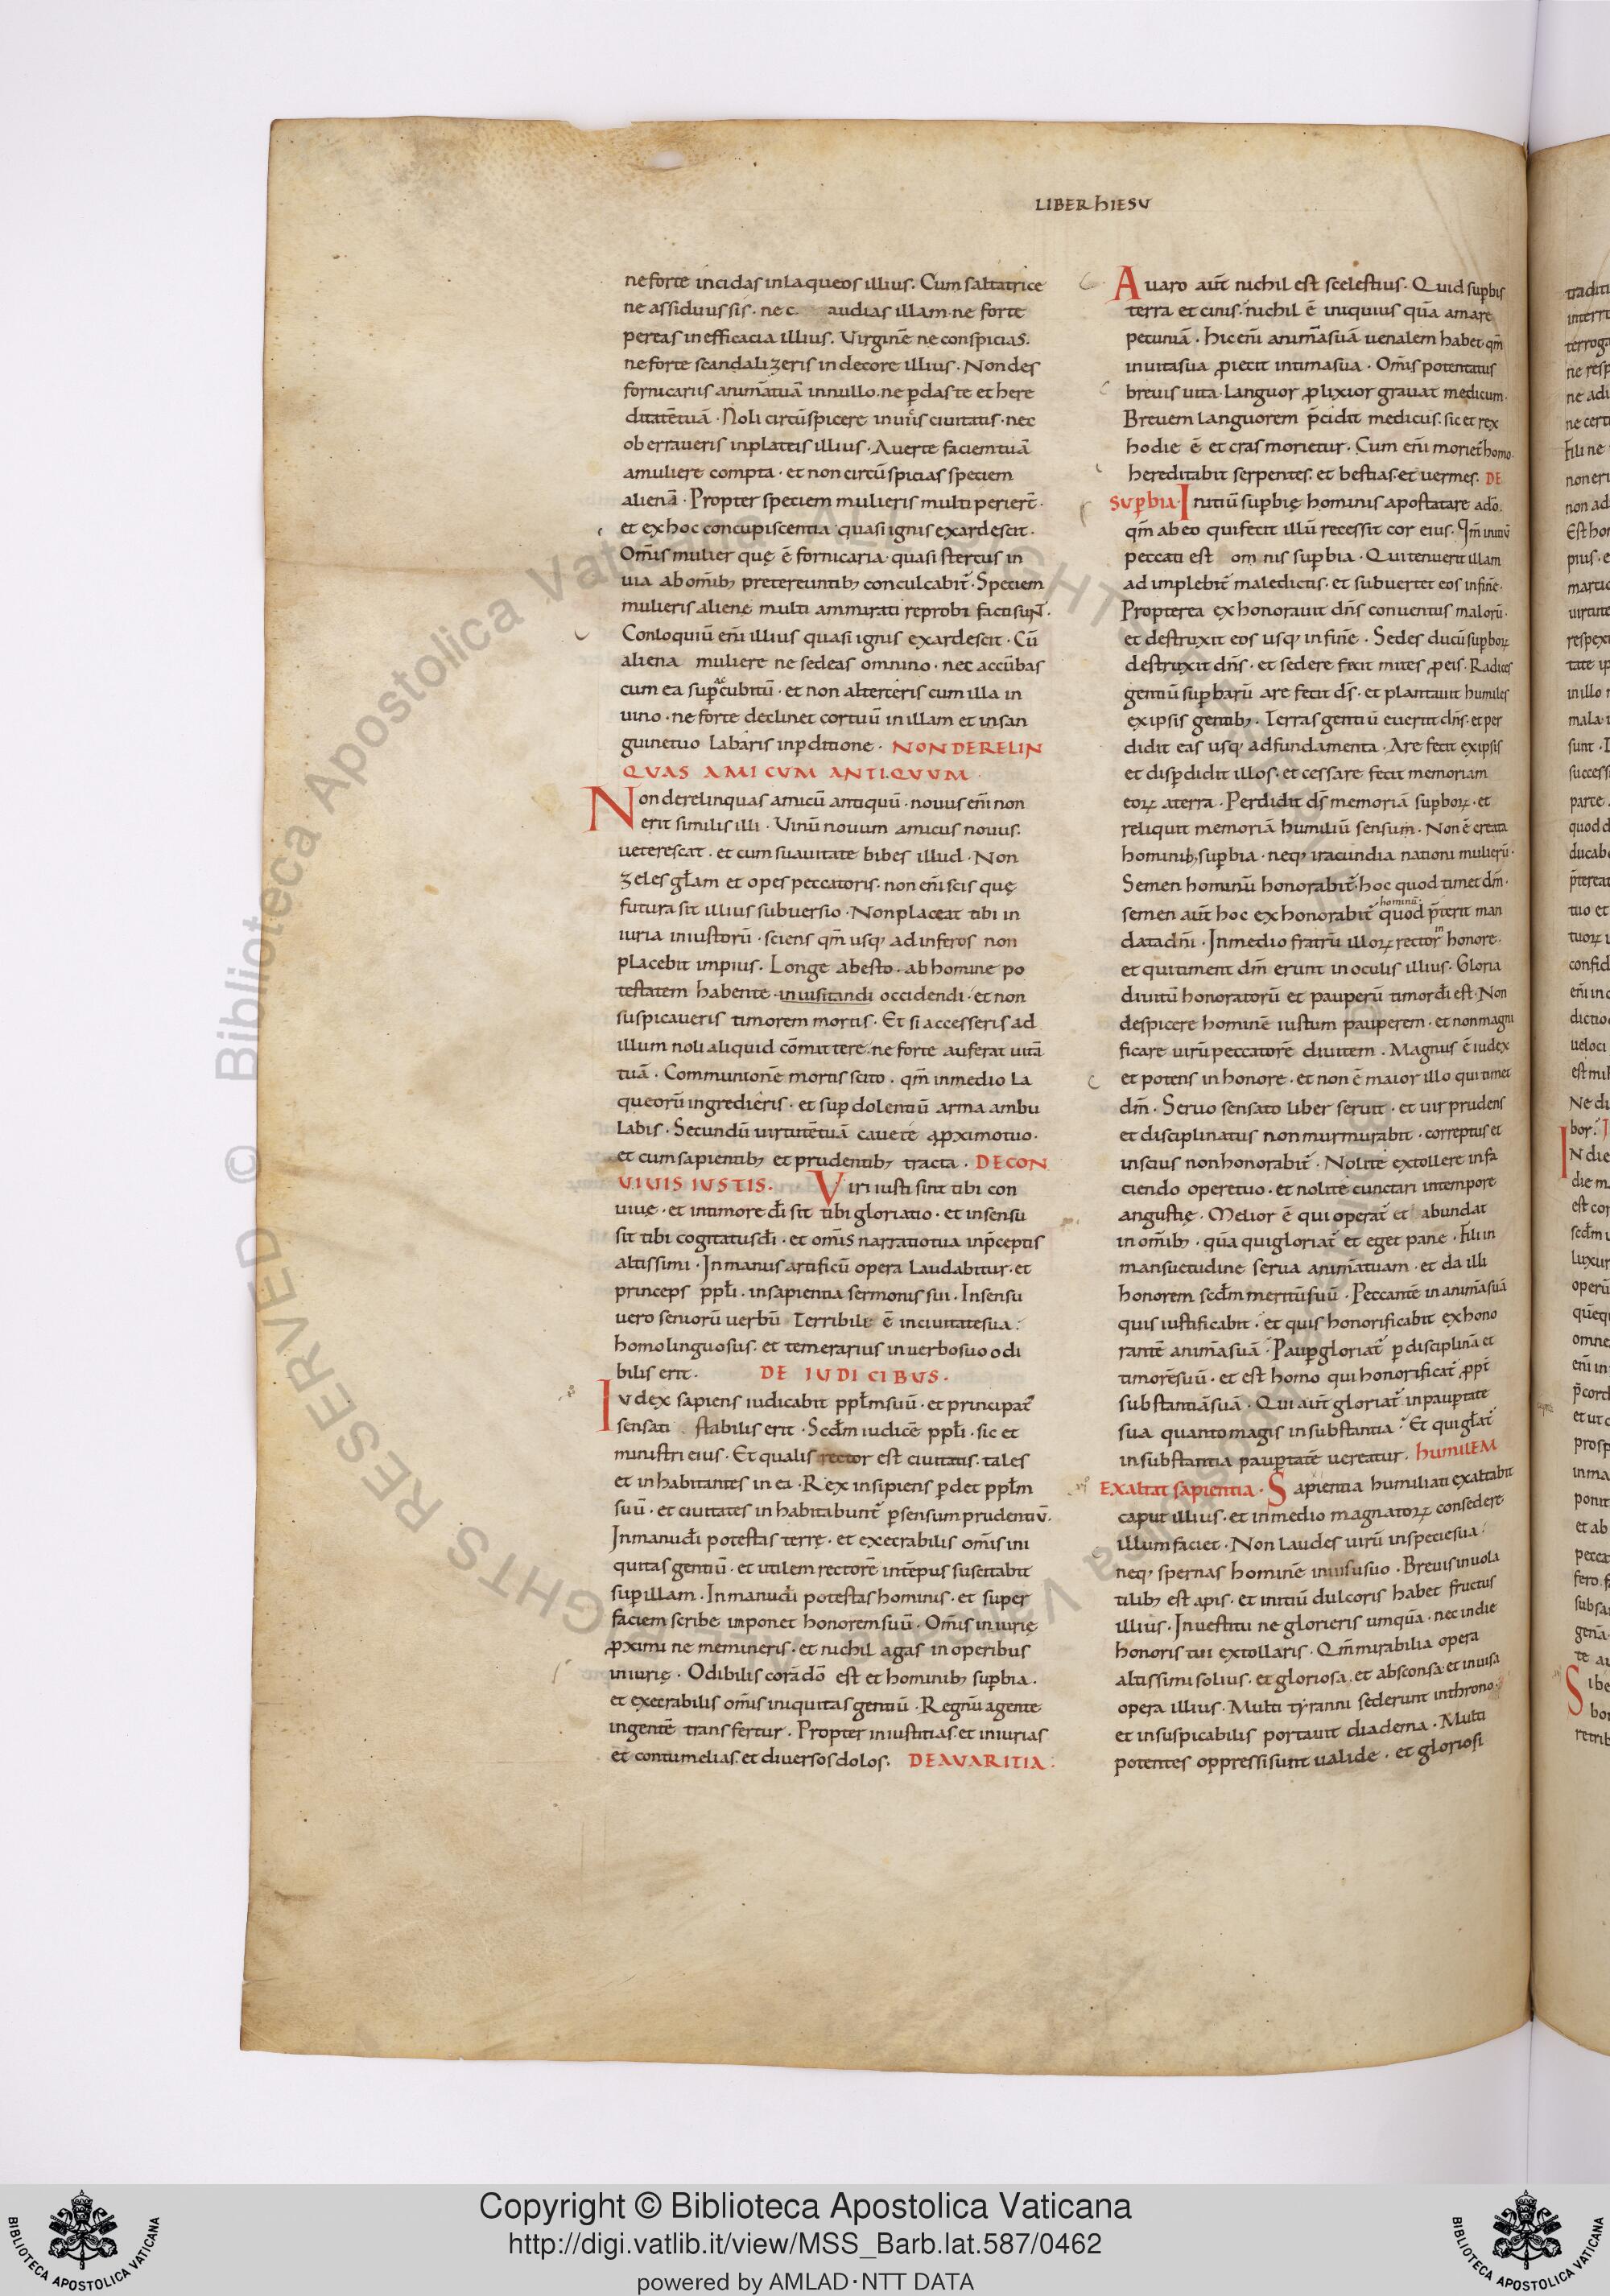 LIBER hIESV
ne forte incidas in laqueos illius. Cum saltatrice
ne assiduus sis. ne c audias illam. ne forte
pereas in efficacia illius. Virginē ne conspicias.
ne forte scandalizeris in decore illius. Non des
fornicariis animā tuā in nullo. ne ꝑdas te et here
ditatē tuā. Noli circūspicere in uicis ciuitatis. nec
oberraueris in plateis illius. Auerte faciem tuā
a muliere compta. et non circūspicias speciem
alienā. Propter speciem mulieris multi perierͭ.
et ex hoc concupiscentia quasi ignis exardescit.
Om̄is mulier quę ē fornicaria. quasi stercus in
uia ab om̄ibꝫ pretereuntibꝫ conculcabit̄. Speciem
mulieris aliene multi ammirati reprobi facti suNT.
Conloquiū eni̅ illius quasi ignis exardescit. Cū
aliena muliere ne sedeas omnino. nec accūbas
cum ea suꝑ accubitū. et non alterceris cum illa in
uino. ne forte declinet cor tuū in illam et in san
guine tuo labaris in ꝑditione. NON DERELIN
QUAS AMICUM ANTIQUUM.
Non derelinquas amicū antiquū. nouus eni̅ non
erit similis illi. Vinū nouum amicus nouus.
ueterescat. et cum suauitate bibes illud. Non
zeles głam et opes peccatoris. non eni̅ scis quę
futura sit illius subuersio. Non placeat tibi in
iuria iniustorū. sciens qm̄ usqꝫ ad inferos non
placebit impius. Longe abesto. ab homine po
testatem habente in uisitandi occidendi. et non
suspicaueris timorem mortis. Et si accesseris ad
illum noli aliquid cōmittere. ne forte auferat uitā
tuā. Communionē mortis scito. qm̄ in medio la
queorū ingredieris. et suꝑ dolentiū arma ambu
labis. Secundū uirtutē tuā cauete a ꝓximo tuo.
et cum sapientibꝫ et prudentibꝫ tracta. DE CON
VIVIS IUSTIS. Viri iusti sint tibi con
uiuę. et in timore di̅ sit tibi gloriatio. et in sensu
sit tibi cogitatus di̅. et om̄is narratio tua in p̄ceptis
altissimi. In manus artificū opera laudabitur. et
princeps ppłi. in sapientia sermonis sui. In sensu
uero seniorū uerbū. Terribilis ē in ciuitate sua.
homo linguosus. et temerarius in uerbo suo odi
bilis erit. DE IUDICIBUS.
Iudex sapiens iudicabit ppłm suū. et principat᷑
sensati stabilis erit. Scd̅m iudicē ppłi. sic et
ministri eius. Et qualis rector est ciuitatis. tales
et inhabitantes in ea. Rex insipiens ꝑdet ppłm
suū. et ciuitates inhabitabunt᷑ ꝑ sensum prudentiū.
In manu di̅ potestas terrę. et execrabilis om̄is ini
quitas gentiū. et utilem rectorē in tēpus suscitabit
suꝑ illam. In manu di̅ potestas hominis. et super
faciem scribe imponet honorem suū. Om̄is iniurię
ꝓximi ne memineris. et nichil agas in operibus
iniurię. Odibilis corā dō est et hominibꝫ suꝑbia.
et execrabilis om̄is iniquitas gentiū. Regnū a gente
in gentē transfertur. Propter iniustitias. et iniurias
et contumelias. et diuersos dolos. DE AVARITIA.
Auaro aut̄ nichil est scelestius. Quid suꝑbis
terra et cinis. nichil ē iniquius quā amare
pecuniā. Hic eni̅ animā suā uenalem habet. qm̄
in uita sua ꝓiecit intima sua. Om̄is potentatus
breuis uita. Languor ꝓlixior grauat medicum.
Breuem languorem p̄cidit medicus. sic et rex
hodie ē et cras morietur. Cum eni̅ moriet᷑ homo.
hereditabit serpentes. et bestias. et uermes. DE
SUꝐBIA. Initiū suꝑbię hominis apostatare a dō.
qm̄ ab eo qui fecit illū recessit cor eius. Qm̄ initiū
peccati est omnis suꝑbia. Qui tenuerit illam
adimplebit᷑ maledictis. et subuertet eos in finē.
Propterea exhonorauit dn̅s conuentus malorū.
et destruxit eos usqꝫ in finē. Sedes ducū suꝑboꝝ
destruxit dn̅s. et sedere fecit mites ꝓ eis. Radices
gentiū suꝑbarū are fecit ds̅. et plantauit humiles
ex ipsis gentibꝫ. Terras gentiū euertit dn̅s. et per
didit eas usqꝫ ad fundamenta. Are fecit ex ipsis
et disꝑdidit illos. et cessare fecit memoriam
eoꝝ a terra. Perdidit ds̅ memoriā suꝑboꝝ. et
reliquit memoriā humiliū sensum. Non ē creata
hominibꝫ suꝑbia. neqꝫ iracundia nationi mulierū.
Semen hominū honorabit᷑. hoc quod timet dm̅.
hominū.
semen aut̄ hoc exhonorabit᷑ quod p̄terit man
data dn̅i. In medio fratrū illoꝝ rector in honore.
et qui timent dm̅ erunt in oculis illius. Gloria
diuitū honoratorū et pauperū timor di̅ est. Non
despicere hominē iustum pauperem. et non magni
ficare uirū peccatorē diuitem. Magnus ē iudex
et potens in honore. et non ē maior illo qui timet
dm̅. Seruo sensato liber seruit. et uir prudens
et disciplinatus non murmurabit. correptus et
inscius non honorabit᷑. Nolite extollere in fa
ciendo opere tuo. et nolite cunctari in tempore
angustię. Melior ē qui operat᷑ et abundat
in om̄ibꝫ. quā qui gloriat᷑ et eget pane. Fili in
mansuetudine serua animā tuam. et da illi
honorem scd̅m meritū suū. Peccantē in animā suā
quis iustificabit. et quis honorificabit exhono
rantē animā suā. Pauꝑ gloriat᷑ ꝑ disciplinā et
timorē suū. et est homo qui honorificat᷑ ꝓpt̄
substantiā suā. Qui aut̄ gloriat᷑ in pauꝑtate
sua quanto magis in substantia. Et qui głat᷑
in substantia pauꝑtatē uereatur. hUMILEM
EXALTAT SAPIENTIA. Sapientia humiliati exaltabit
caput illius. et in medio magnatoꝝ consedere
illum faciet. Non laudes uirū in specie sua.
neqꝫ spernas hominē in uisu suo. Breuis in uola
tilibꝫ est apis. et initiū dulcoris habet fructus
illius. In uestitu ne glorieris umquā. nec in die
honoris tui extollaris. Qm̄ mirabilia opera
altissimi solius. et gloriosa. et absconsa. et inuisa
opera illius. Multi tyranni sederunt in throno.
et insuspicabilis portauit diadema. Multi
potentes oppressi sunt ualide. et gloriosi
Copyright © Biblioteca Apostolica Vaticana
http://digi.vatlib.it/view/MSS_Barb.lat.587/0462
powered by AMLAD·NTT DATA